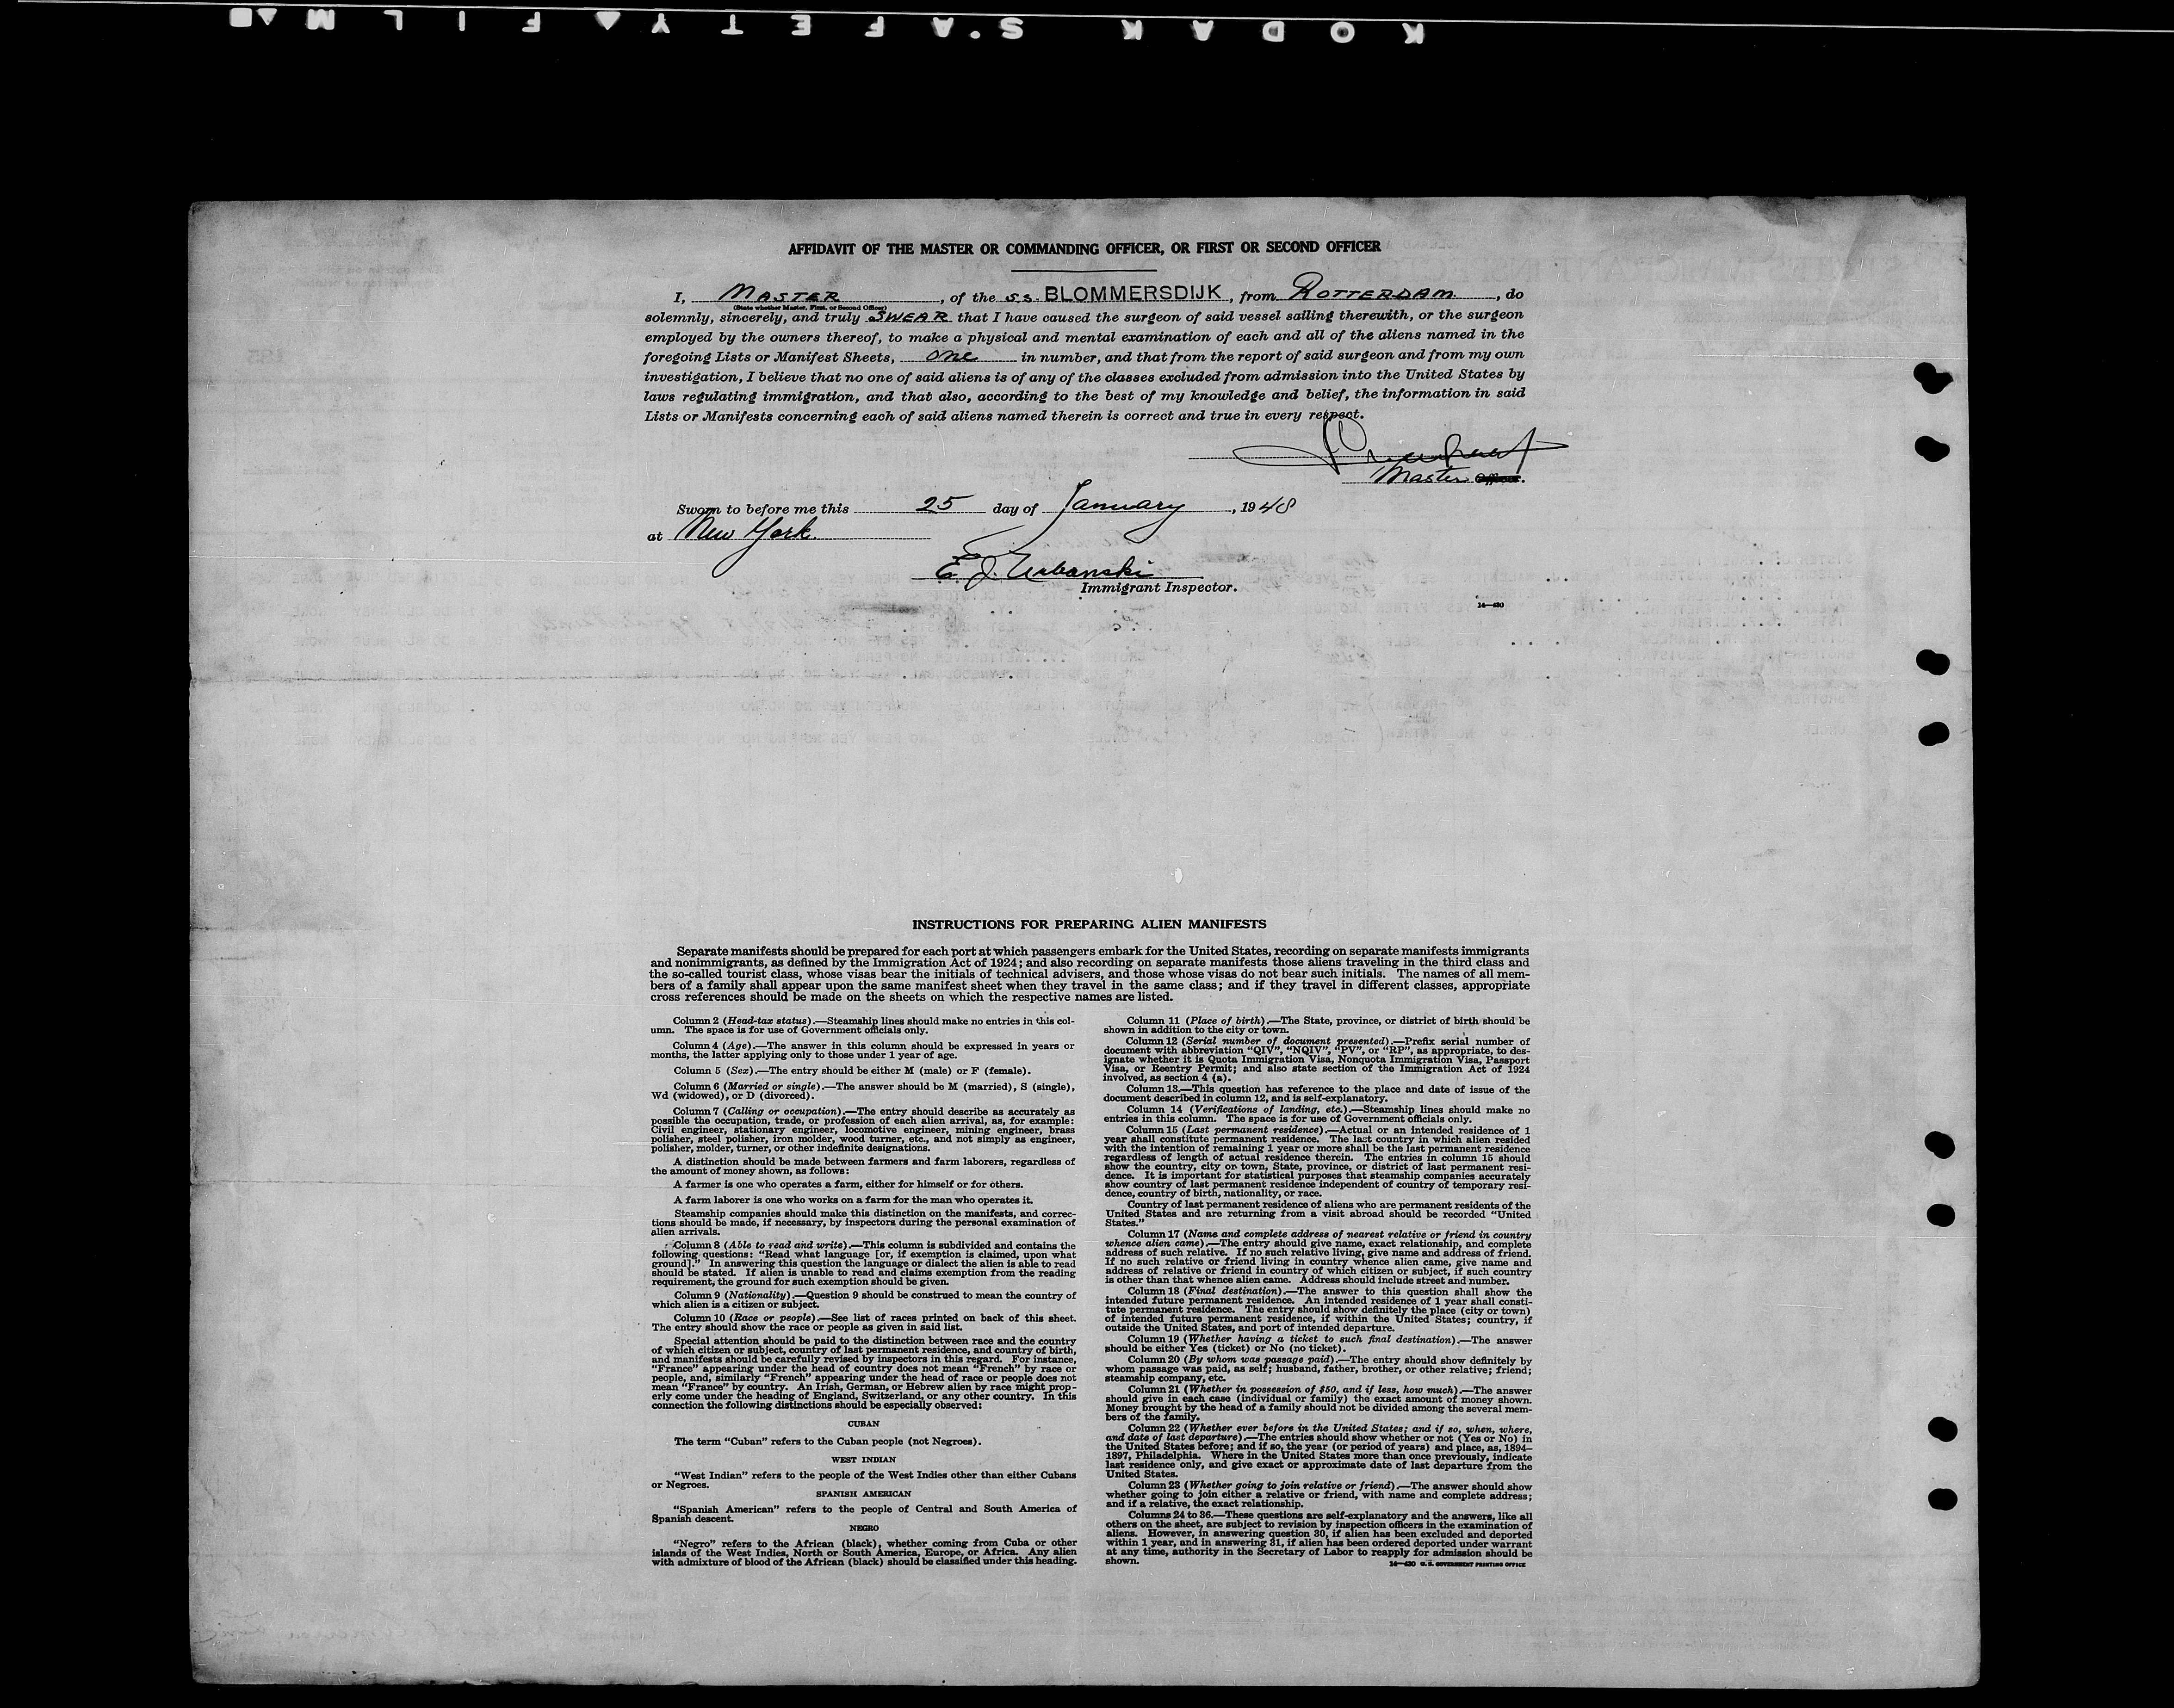 KODAK SAFETY FILM
AFFIDAVIT OF THE MASTER OR COMMANDING OFFICER, OR FIRST OR SECOND OFFICER
I, MASTER, of the S.S. BLOMMERSDIJK, from ROTTERDAM, do
(State whether Master, First, or Second Officer)
solemnly, sincerely, and truly SWEAR that I have caused the surgeon of said vessel sailing therewith, or the surgeon
employed by the owners thereof, to make a physical and mental examination of each and all of the aliens named in the
foregoing Lists or Manifest Sheets, one in number, and that from the report of said surgeon and from my own
investigation, I believe that no one of said aliens is of any of the classes excluded from admission into the United States by
laws regulating immigration, and that also, according to the best of my knowledge and belief, the information in said
Lists or Manifests concerning each of said aliens named therein is correct and true in every respect.
Master Officer.
Sworn to before me this 25 day of January, 1948
at New York.
E. J. Urbanski
Immigrant Inspector.
14—430
INSTRUCTIONS FOR PREPARING ALIEN MANIFESTS
Separate manifests should be prepared for each port at which passengers embark for the United States, recording on separate manifests immigrants
and nonimmigrants, as defined by the Immigration Act of 1924; and also recording on separate manifests those aliens traveling in the third class and
the so-called tourist class, whose visas bear the initials of technical advisers, and those whose visas do not bear such initials. The names of all mem-
bers of a family shall appear upon the same manifest sheet when they travel in the same class; and if they travel in different classes, appropriate
cross references should be made on the sheets on which the respective names are listed.
Column 2 (Head-tax status).—Steamship lines should make no entries in this col-
umn. The space is for use of Government officials only.
Column 4 (Age).—The answer in this column should be expressed in years or
months, the latter applying only to those under 1 year of age.
Column 5 (Sex).—The entry should be either M (male) or F (female).
Column 6 (Married or single).—The answer should be M (married), S (single),
Wd (widowed), or D (divorced).
Column 7 (Calling or occupation).—The entry should describe as accurately as
possible the occupation, trade, or profession of each alien arrival, as, for example:
Civil engineer, stationary engineer, locomotive engineer, mining engineer, brass
polisher, steel polisher, iron molder, wood turner, etc., and not simply as engineer,
polisher, molder, turner, or other indefinite designations.
A distinction should be made between farmers and farm laborers, regardless of
the amount of money shown, as follows:
A farmer is one who operates a farm, either for himself or for others.
A farm laborer is one who works on a farm for the man who operates it.
Steamship companies should make this distinction on the manifests, and correc-
tions should be made, if necessary, by inspectors during the personal examination of
alien arrivals.
Column 8 (Able to read and write).—This column is subdivided and contains the
following questions: "Read what language [or, if exemption is claimed, upon what
ground]." In answering this question the language or dialect the alien is able to read
should be stated. If alien is unable to read and claims exemption from the reading
requirement, the ground for such exemption should be given.
Column 9 (Nationality).—Question 9 should be construed to mean the country of
which alien is a citizen or subject.
Column 10 (Race or people).—See list of races printed on back of this sheet.
The entry should show the race or people as given in said list.
Special attention should be paid to the distinction between race and the country
of which citizen or subject, country of last permanent residence, and country of birth,
and manifests should be carefully revised by inspectors in this regard. For instance,
"France" appearing under the head of country does not mean "French" by race or
people, and, similarly "French" appearing under the head of race or people does not
mean "France" by country. An Irish, German, or Hebrew alien by race might prop-
erly come under the heading of England, Switzerland, or any other country. In this
connection the following distinctions should be especially observed:
CUBAN
The term "Cuban" refers to the Cuban people (not Negroes).
WEST INDIAN
"West Indian" refers to the people of the West Indies other than either Cubans
or Negroes.
SPANISH AMERICAN
"Spanish American" refers to the people of Central and South America of
Spanish descent.
NEGRO
"Negro" refers to the African (black), whether coming from Cuba or other
islands of the West Indies, North or South America, Europe, or Africa. Any alien
with admixture of blood of the African (black) should be classified under this heading.
Column 11 (Place of birth).—The State, province, or district of birth should be
shown in addition to the city or town.
Column 12 (Serial number of document presented).—Prefix serial number of
document with abbreviation "QIV", "NQIV", "PV", or "RP", as appropriate, to des-
ignate whether it is Quota Immigration Visa, Nonquota Immigration Visa, Passport
Visa, or Reentry Permit; and also state section of the Immigration Act of 1924
involved, as section 4 (a).
Column 13.—This question has reference to the place and date of issue of the
document described in column 12, and is self-explanatory.
Column 14 (Verifications of landing, etc.).—Steamship lines should make no
entries in this column. The space is for use of Government officials only.
Column 15 (Last permanent residence).—Actual or an intended residence of 1
year shall constitute permanent residence. The last country in which alien resided
with the intention of remaining 1 year or more shall be the last permanent residence
regardless of length of actual residence therein. The entries in column 15 should
show the country, city or town, State, province, or district of last permanent resi-
dence. It is important for statistical purposes that steamship companies accurately
show country of last permanent residence independent of country of temporary resi-
dence, country of birth, nationality, or race.
Country of last permanent residence of aliens who are permanent residents of the
United States and are returning from a visit abroad should be recorded "United
States."
Column 17 (Name and complete address of nearest relative or friend in country
whence alien came).—The entry should give name, exact relationship, and complete
address of such relative. If no such relative living, give name and address of friend.
If no such relative or friend living in country whence alien came, give name and
address of relative or friend in country of which citizen or subject, if such country
is other than that whence alien came. Address should include street and number.
Column 18 (Final destination).—The answer to this question shall show the
intended future permanent residence. An intended residence of 1 year shall consti-
tute permanent residence. The entry should show definitely the place (city or town)
of intended future permanent residence, if within the United States; country, if
outside the United States, and port of intended departure.
Column 19 (Whether having a ticket to such final destination).—The answer
should be either Yes (ticket) or No (no ticket).
Column 20 (By whom was passage paid).—The entry should show definitely by
whom passage was paid, as self; husband, father, brother, or other relative; friend;
steamship company, etc.
Column 21 (Whether in possession of $50, and if less, how much).—The answer
should give in each case (individual or family) the exact amount of money shown.
Money brought by the head of a family should not be divided among the several mem-
bers of the family.
Column 22 (Whether ever before in the United States; and if so, when, where,
and date of last departure).—The entries should show whether or not (Yes or No) in
the United States before; and if so, the year (or period of years) and place, as, 1894–
1897, Philadelphia. Where in the United States more than once previously, indicate
last residence only, and give exact or approximate date of last departure from the
United States.
Column 23 (Whether going to join relative or friend).—The answer should show
whether going to join either a relative or friend, with name and complete address;
and if a relative, the exact relationship.
Columns 24 to 36.—These questions are self-explanatory and the answers, like all
others on the sheet, are subject to revision by inspection officers in the examination of
aliens. However, in answering question 30, if alien has been excluded and deported
within 1 year, and in answering 31, if alien has been ordered deported under warrant
at any time, authority in the Secretary of Labor to reapply for admission should be
shown.
14—430 U. S. GOVERNMENT PRINTING OFFICE